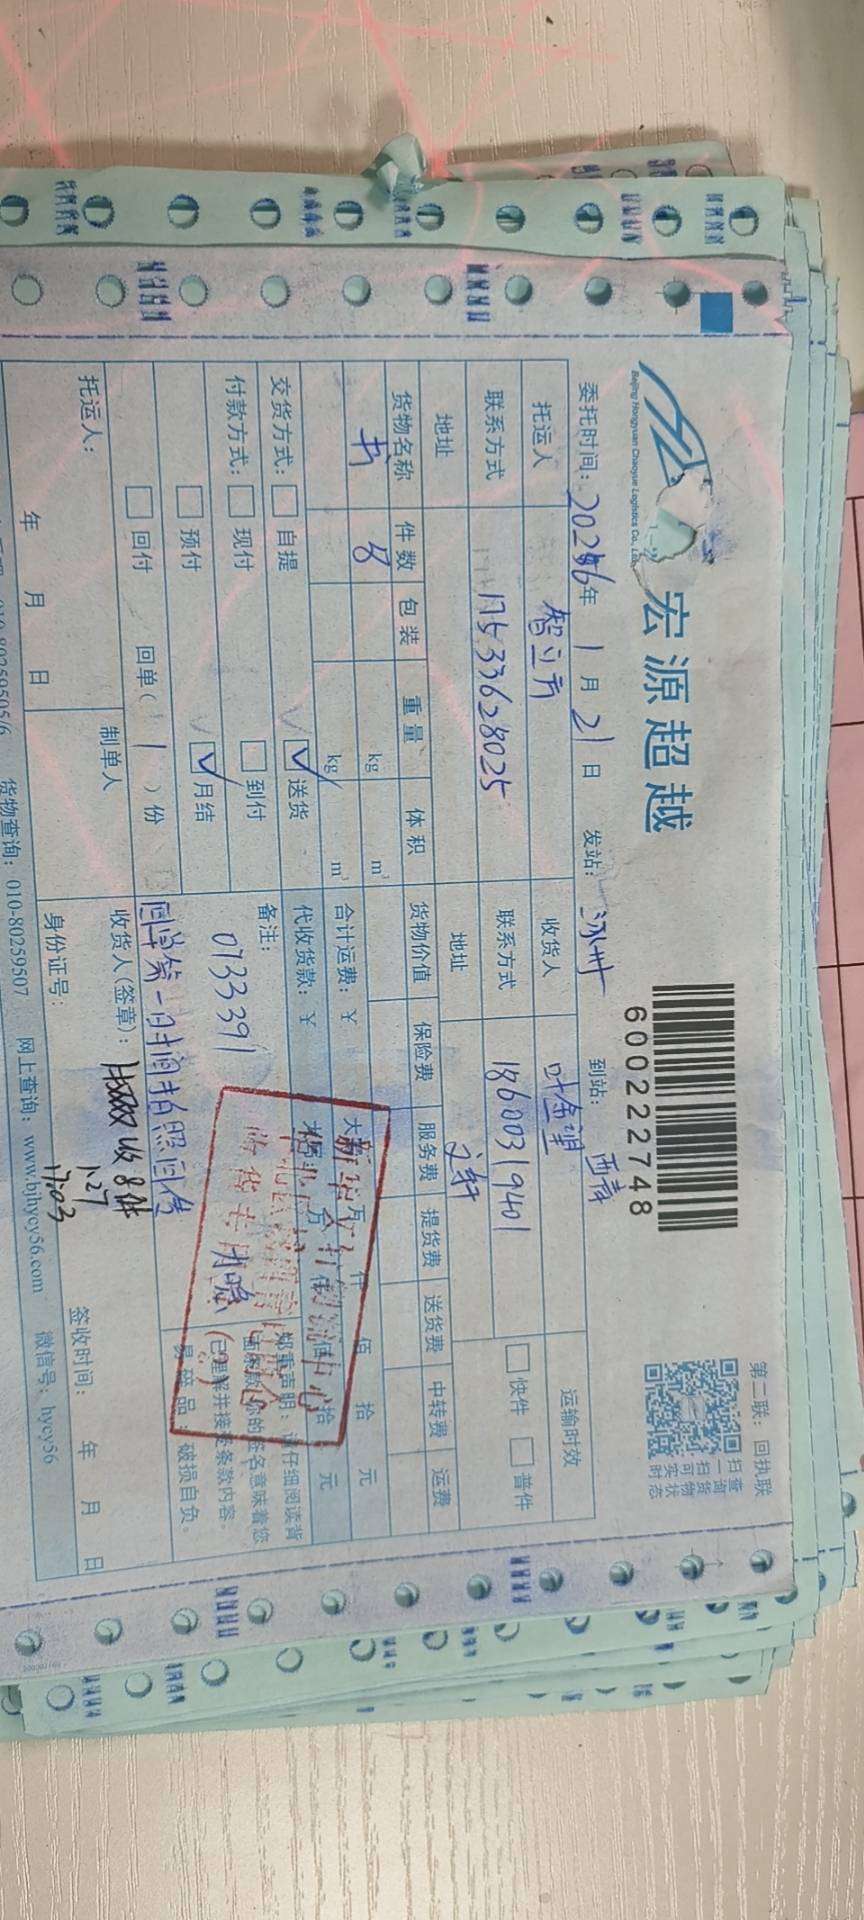 第二联：回执联
宏源超越
Beijing Hongyuan Chaoyue Logistics Co., Ltd
600222748
扫一扫 可实时
查询货物状态
委托时间：2026年1月21日 发站：涿州 到站：西青
托运人 智立方 收货人 叶金望 运输时效
联系方式 17533628025 联系方式 18600319401 快件 普件
地址 地址 文轩
货物名称 件数 包装 重量 体积 货物价值 保险费 服务费 提货费 送货费 中转费 运费
书 8 kg m³
kg m³
合计运费：￥ 大写 万 仟 佰 拾 元
交货方式： 自提 送货 代收货款：￥ 大写 万 仟 佰 拾 元
付款方式： 现付 到付 备注：
预付 月结 0733391
回付 回单（1）份 回单第一时间拍照回传
郑重声明：请仔细阅读背
面条款，您的签名意味着您
已理解并接受条款内容。
易碎品：破损自负。
新华文轩 物流中心
收货专用章
托运人： 制单人 收货人(签章)： 收8件
1.27
17:03
年 月 日 身份证号： 签收时间： 年 月 日
010-80259505/6 货物查询：010-80259507 网上查询：www.bjhycy56.com 微信号：hycy56